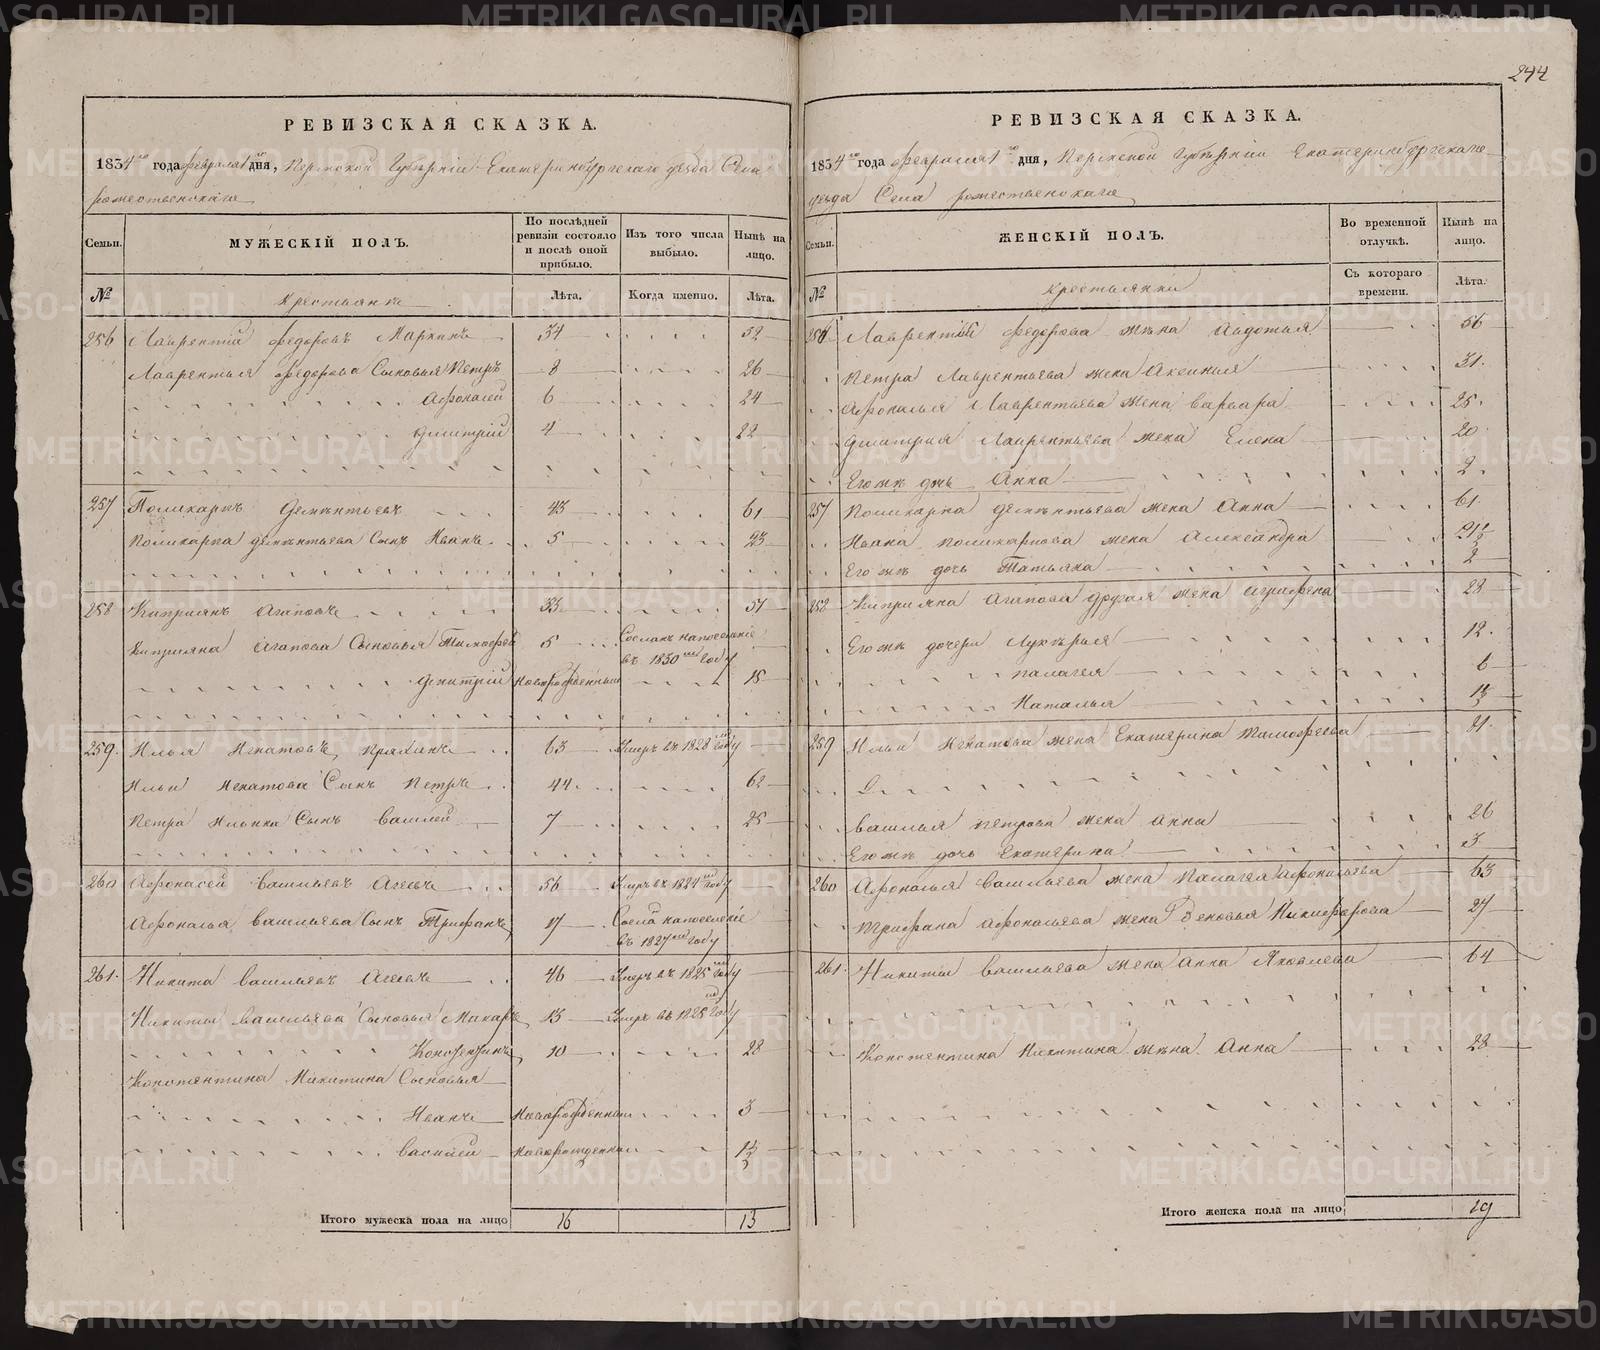 244
РЕВИЗСКАЯ СКАЗКА.
1834 го года февраля 1 го дня, Пермской Губернии Екатеринбургскаго уезда Села
рожественскаго
Семьи. МУЖЕСКІЙ ПОЛЪ. По послѣдней ревизіи состояло и послѣ оной прибыло. Изъ того числа выбыло. Нынѣ на лицо.
№ крестьяне Лѣта. Когда именно. Лѣта.
256 Лаврентий федоровъ Маркинъ 34 52
Лаврентья федорова Сыновья Петръ 8 26
Афонасей 6 24
Дмитрий 4 22
257 Поликарпъ Дементьевъ 43 61
Поликарпа дементьева Сынъ Иванъ 5 23
258 Киприянъ Агаповъ 33 51
Киприяна Агапова Сыновья Тимофей 5 Сосланъ напоселение въ 1830 году
Дмитрий Новорожденный 15
259. Илья Игнатовъ 63 Умеръ въ 1828 году
Ильи Игнатова Сынъ Петръ 44 62
Петра Ильина Сынъ Василей 7 25
260 Афонасей васильевъ Агеевъ 56 Умеръ въ году
Афонасья васильева Сынъ Трифанъ 17 напоселение въ 1827 году
261. Никита васильевъ Агеевъ 46 Умеръ въ 1825 году
Никиты васильева Сыновья Макаръ 13 Умеръ въ 1825 году
Констентинъ 10 28
Констентина Никитина Сыновья
Иванъ Новорожденный 3
василей новорожденный
Итого мужеска пола на лицо 16 13
РЕВИЗСКАЯ СКАЗКА.
1834 го года февраля 1 го дня, Пермской Губернии Екатеринбургскаго
уезда Села рожественскаго
Семьи. ЖЕНСКІЙ ПОЛЪ. Во временной отлучкѣ. Нынѣ на лицо.
№ крестьянки Съ котораго времени. Лѣта.
256 Лаврентий федорова жена Авдотья 56
Петра Лаврентьева жена Аксинья 31
Афонасья Лаврентьева жена варвара 25
Дмитрия Лаврентьева жена Елена 20
Егоже дочь Анна 2
257 Поликарпа дементьева жена Анна 61
Ивана поликарпова жена Александра
Егоже дочь Татьяна 2
258 Киприяна Агапова другая жена аграфена 28
Егоже дочери Лукерья 12
палагея 6
Наталья
259 Ильи Игнатова жена Екатерина тимофеева
василья петрова жена анна 26
Егоже дочь Екатерина 3
260 Афонасья васильева жена Палагея афонасьева 63
трифана афонасьева жена Зеновья Никифорова 27
261. Никиты васильева жена Анна Яковлева 64
Констентина Никитина жена Анна 28
Итого женска пола на лицо 19
METRIKI.GASO-URAL.RU